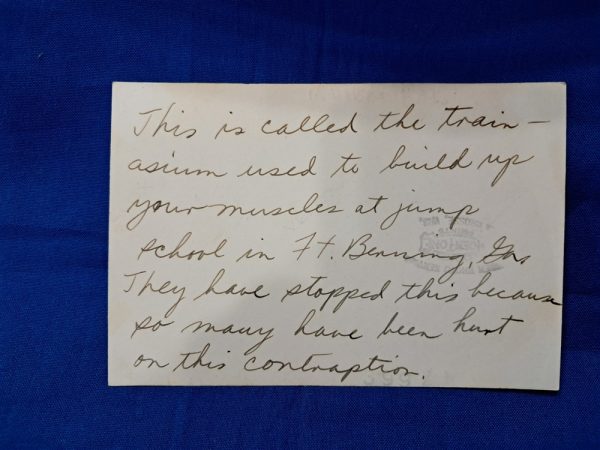 This is called the train-
asium used to build up
your muscles at jump
school in Ft. Benning, Ga.
They have stopped this because
so many have been hurt
on this contraption.